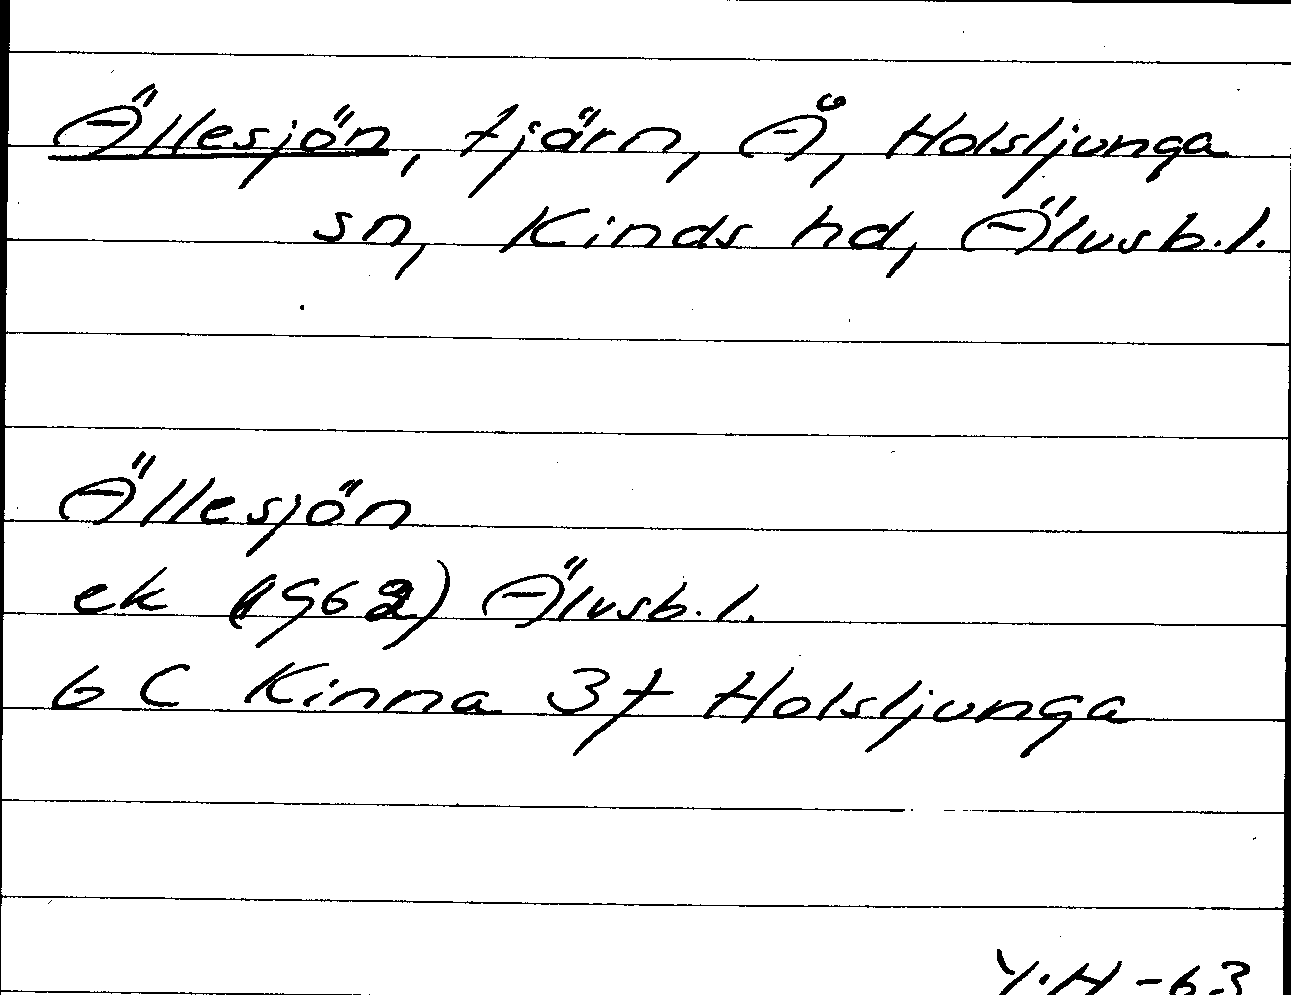 Ällesjön, tjärn, Å, Holsljunga
sn, Kinds hd, Älvsb.l.
Ällesjön
ek (1962) Älvsb.l.
6 C Kinna 3f Holsljunga
Y.H -63